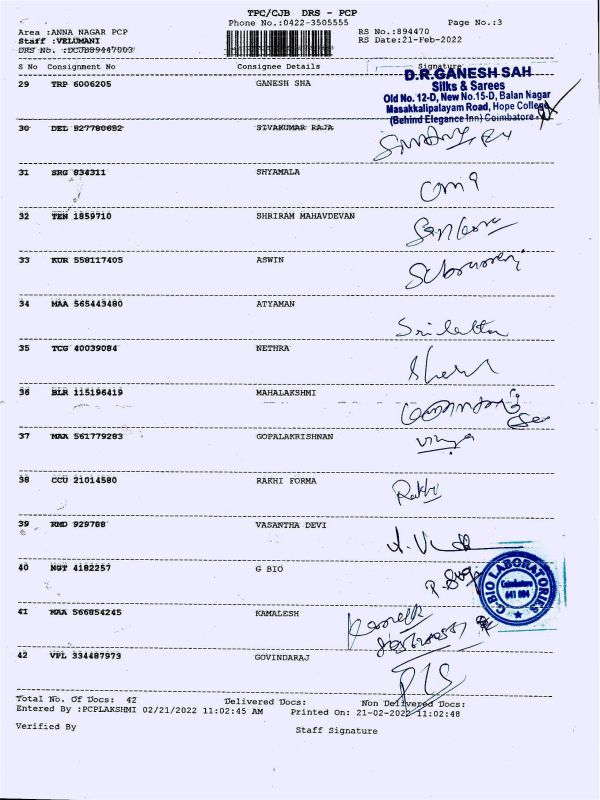 TPC/CJB DRS - PCP
Phone No.:0422-3505555 Page No.:3
Area :ANNA NAGAR PCP RS No.:894470
Staff :VELUMANI RS Date:21-Feb-2022
DRS No. :DCJB89447003
S No Consignment No Consignee Details Signature
29 TRP 6006205 GANESH SHA
D.R.GANESH SAH
Silks & Sarees
Old No. 12-D, New No.15-D, Balan Nagar
Masakkalipalayam Road, Hope College
(Behind Elegance Inn) Coimbatore -
30 DEL 527780652 SIVAKUMAR RAJA
31 SRG 834311 SHYAMALA
32 TEN 1859710 SHRIRAM MAHAVDEVAN
33 KUR 558117405 ASWIN
34 MAA 565443480 ATYAMAN
35 TCG 40039084 NETHRA
36 BLR 115196419 MAHALAKSHMI
37 MAA 561779283 GOPALAKRISHNAN
38 CCU 21014580 RAKHI FORMA
Rakhi
39 RMD 929788 VASANTHA DEVI
40 NGT 4182257 G BIO
G-BIO LABORATORIES
Coimbatore
641 004
41 MAA 566854245 KAMALESH
42 VPL 334487973 GOVINDARAJ
Total No. Of Docs: 42 Delivered Docs: Non Delivered Docs:
Entered By :PCPLAKSHMI 02/21/2022 11:02:45 AM Printed On: 21-02-2022 11:02:48
Verified By Staff Signature